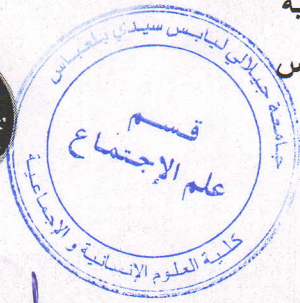 جامعة جيلالي ليابس سيدي بلعباس
قسم
علم الإجتماع
كلية العلوم الإنسانية و الإجماعية